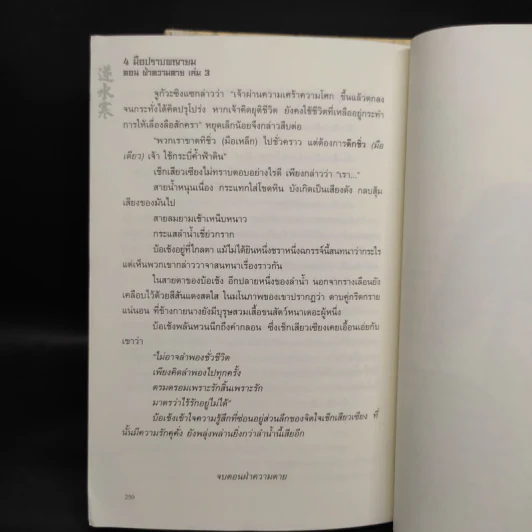 逆水寒
4 มือปราบพญายม
ตอน ฝ่าความตาย เล่ม 3
จูกัวะเซิงแซกล่าวว่า "เจ้าผ่านความเศร้าความโศก ขึ้นแล้วตกลง
จนกระทั่งได้คิดปรุโปร่ง หากเจ้าคิดยุติชีวิต ยังคงใช้ชีวิตที่เหลืออยู่กระทำ
การให้เลื่องลือสักครา" หยุดเล็กน้อยจึงกล่าวสืบต่อ
"พวกเราขาดทิชิ่ว (มือเหล็ก) ไปชั่วคราว แต่ต้องการตักชิ่ว (มือ
เดียว) เจ้า ใช้กระบี่ค้ำฟ้าดิน"
เช็กเสียวเซียงไม่ทราบตอบอย่างไรดี เพียงกล่าวว่า "เรา..."
สายน้ำหนุนเนื่อง กระแทกใส่โขดหิน บังเกิดเป็นเสียงดัง กลบสุ้ม
เสียงของมันไป
สายลมยามเช้าเหน็บหนาว
กระแสลำน้ำเชี่ยวกราก
บ้อเช้งอยู่ที่ไกลตา แม้ไม่ได้ยินหนึ่งชราหนึ่งฉกรรจ์นี้สนทนาว่ากระไร
แต่เห็นพวกเขากล่าววาจาสนทนาเรื่องราวกัน
ในสายตาของบ้อเช้ง อีกปลายหนึ่งของลำน้ำ นอกจากรางเลือนยัง
เคลือบไว้ด้วยสีสันแดงสดใส ในมโนภาพของเขาปรากฏว่า ดาบคู่กรีดกราย
แน่นอน ที่ข้างกายนางยังมีบุรุษสวมเสื้อขนสัตว์หนาเตอะผู้หนึ่ง
บ้อเช้งพลันหวนนึกถึงคำกลอน ซึ่งเช็กเสียวเซียงเคยเอื้อนเอ่ยกับ
เขาว่า
"ไม่อาจลำพองชั่วชีวิต
เพียงคิดลำพองไปทุกครั้ง
ตรมตรอมเพราะรักสิ้นเพราะรัก
มาตรว่าไร้รักอยู่ไม่ได้"
บ้อเช้งเข้าใจความรู้สึกที่ซ่อนอยู่ส่วนลึกของจิตใจเช็กเสียวเซียง ที่
นั้นมีความรักคุคั่ง ยังพลุ่งพล่านยิ่งกว่าลำน้ำนี้เสียอีก
จบตอนฝ่าความตาย
250